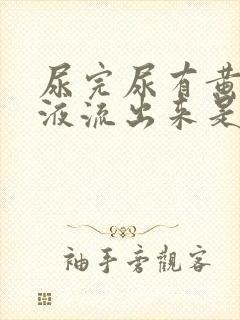 尿完尿有黄
液流出来是
袖手旁觀客